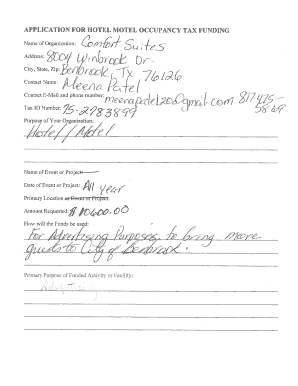 APPLICATION FOR HOTEL MOTEL OCCUPANCY TAX FUNDING
Name of Organization: Comfort Suites
Address: 8004 Winbrook Dr.
City, State, Zip: Benbrook, TX 76126
Contact Name: Meena Patel
Contact E-Mail and phone number: meenapatel20@gmail.com 817475-5869
Tax ID Number: 75-2783899
Purpose of Your Organization:
Hotel/Motel
Name of Event or Project:
Date of Event or Project: All year
Primary Location or Event or Project:
Amount Requested: $
How will the Funds be used:
For Advertising Purposes, to bring more
guests to City of Benbrook.
Primary Purpose of Funded Activity or Facility:
Advertising